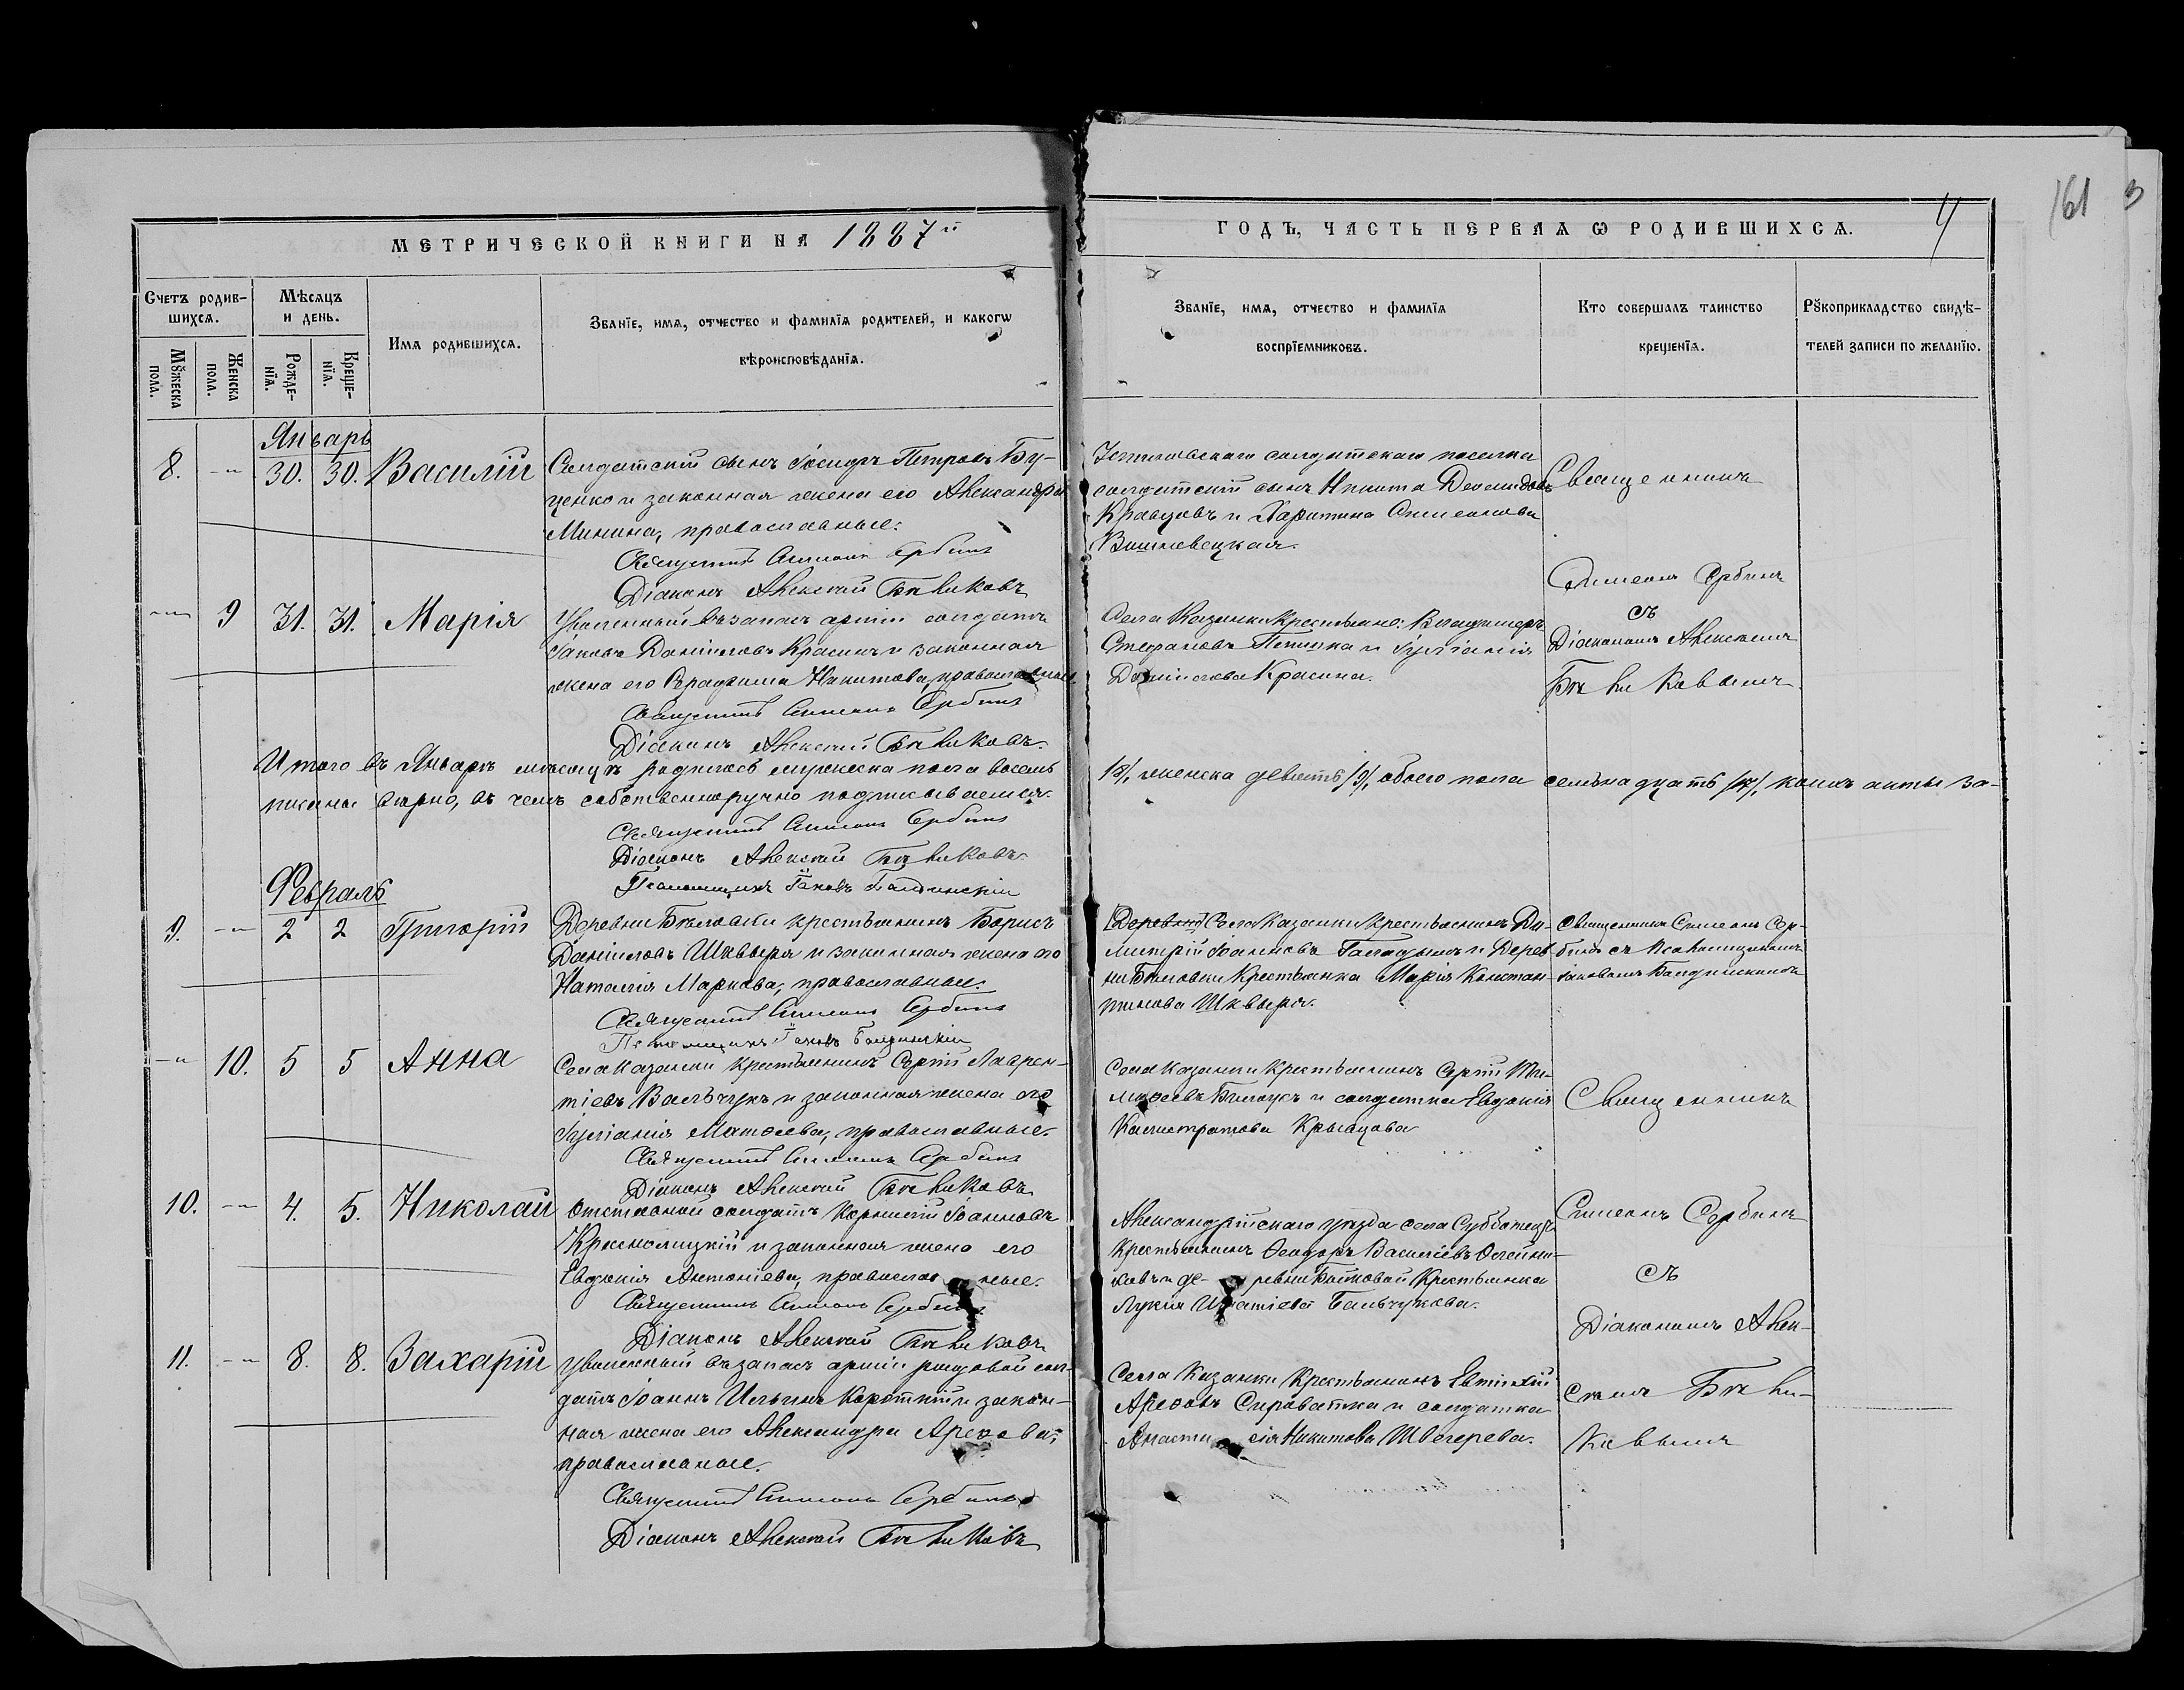 161
4
МЕТРИЧЕСКОЙ КНИГИ НА 1887й
ГОДЪ, ЧАСТЬ ПЕРВАЯ Ѡ РОДИВШИХСЯ.
Счетъ родив-
шихся.
Мѣсяцъ
и день.
Мужеска
пола.
Женска
пола.
Рожде-
нїя.
Креще-
нїя.
Имя родившихся.
Званїе, имя, отчество и фамилїя родителей, и какогѡ
вѣроисповѣданїя.
Званїе, имя, отчество и фамилїя
воспрїемниковъ.
Кто совершалъ таинство
крещенїя.
Рꙋкоприкладство свидѣ-
телей записи по желанїю.
Январь
8. -"- 30. 30. Василій
Солдатскій сынъ Іосифъ Петровъ Бу-
ценко и законная жена его Александра
Минина, православные.
Священникъ Симеонъ Сербинъ
Діаконъ Алексѣй
солдатскаго поселка
солдатскій сынъ Никита Деомидовъ
Кравцовъ и Харитина Симеонова
Вишневецкая.
Священникъ
Симеонъ Сербинъ
съ
Діакономъ Алексѣемъ
-"- 9 31. 31. Марія
Уволенный въ запасъ арміи солдатъ
Іаковъ Даніиловъ Красинъ и законная
жена его Никитова, православные.
Священникъ Симеонъ Сербинъ
Діаконъ Алексѣй
Села Казанки Крестьяне: Владимиръ
Стефановъ и Іуліанія
Даніилова Красина.
Итого въ Январѣ мѣсяцѣ родилось мужеска пола восемь /8/, женска девять /9/, обоего пола семьнадцать /17/, коихъ акты за-
писаны вѣрно, въ чемъ собственноручно подписываемся.
Священникъ Симеонъ Сербинъ
Діаконъ Алексѣй
Псаломщикъ Іаковъ
Февраль
9. -"- 2 2 Григорій
Деревни Бѣловки крестьянинъ Борисъ
Даніиловъ Шквыря и законная жена его
Наталія Маркова, православные.
Священникъ Симеонъ Сербинъ
Псаломщикъ Іаковъ
Деревни Села Казанки Крестьянинъ Ди-
митрій Іоанновъ и Дерев-
ни Бѣловки Крестьянка Марія Констан-
тинова Шквыря.
Священникъ Симеонъ Сер-
бинъ съ Псаломщикомъ
Іаковомъ
-"- 10. 5 5 Анна
Села Казанки Крестьянинъ Сергій Лаврен-
тіевъ Вальчукъ и законная жена его
Іуліанія Матѳеева, православные.
Священникъ Симеонъ Сербинъ
Діаконъ Алексѣй
Села Казанки Крестьянинъ Сергій Ти-
моѳеевъ Билоусъ и солдатка Евдокія
Калистратова
Священникъ
10. -"- 4. 5. Николай
Отставной солдатъ Корнилій Іоанновъ
и законная жена его
Евдокія Антоніева, православные.
Священникъ Симеонъ Сербинъ
Діаконъ Алексѣй
Александрійскаго уѣзда села Субботецъ
Крестьянинъ Ѳеодоръ Василіевъ Олейни-
ковъ и де- ревни Крестьянка
Лукія Игнатіева
Симеонъ Сербинъ
съ
Діакономъ Алек-
сѣемъ
11. -"- 8. 8. Захарій
Уволенный въ запасъ арміи рядовой сол-
датъ Іоаннъ Ильинъ Короткій и закон-
ная жена его Александра Ареѳова,
православные.
Священникъ Симеонъ Сербинъ
Діаконъ Алексѣй
Села Казанки Крестьянинъ Евтихій
Ареѳовъ Сироватка и солдатка
Анаста сія Никитова